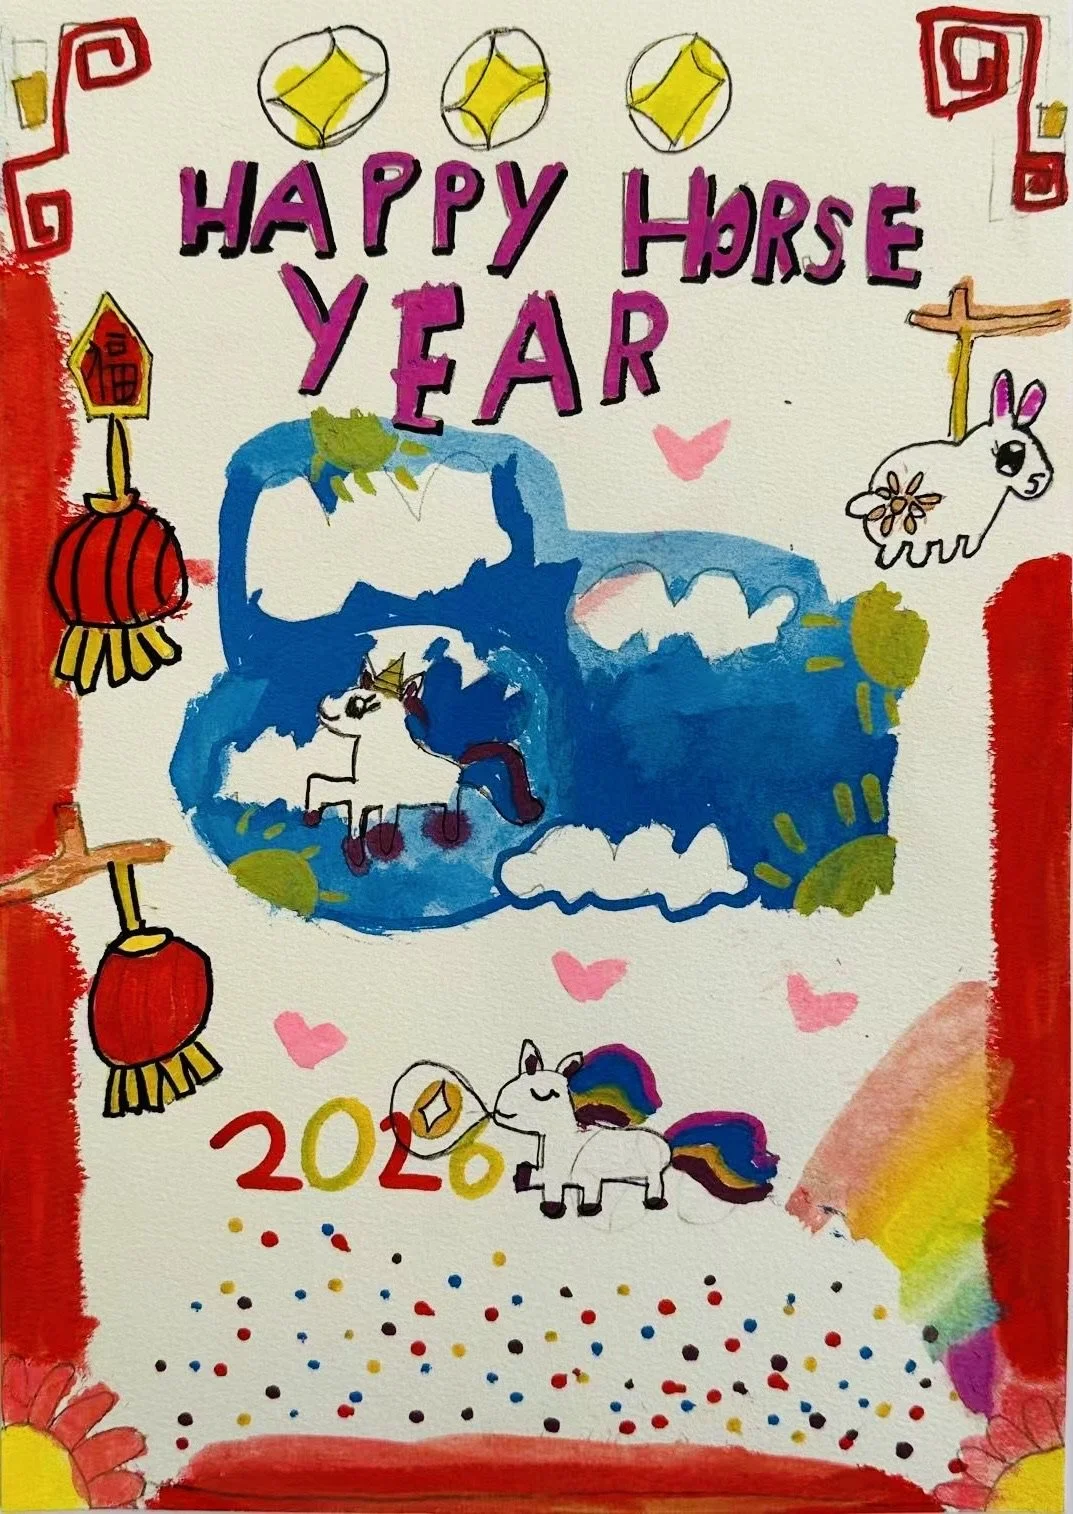 HAPPY HORSE
YEAR
福
2026